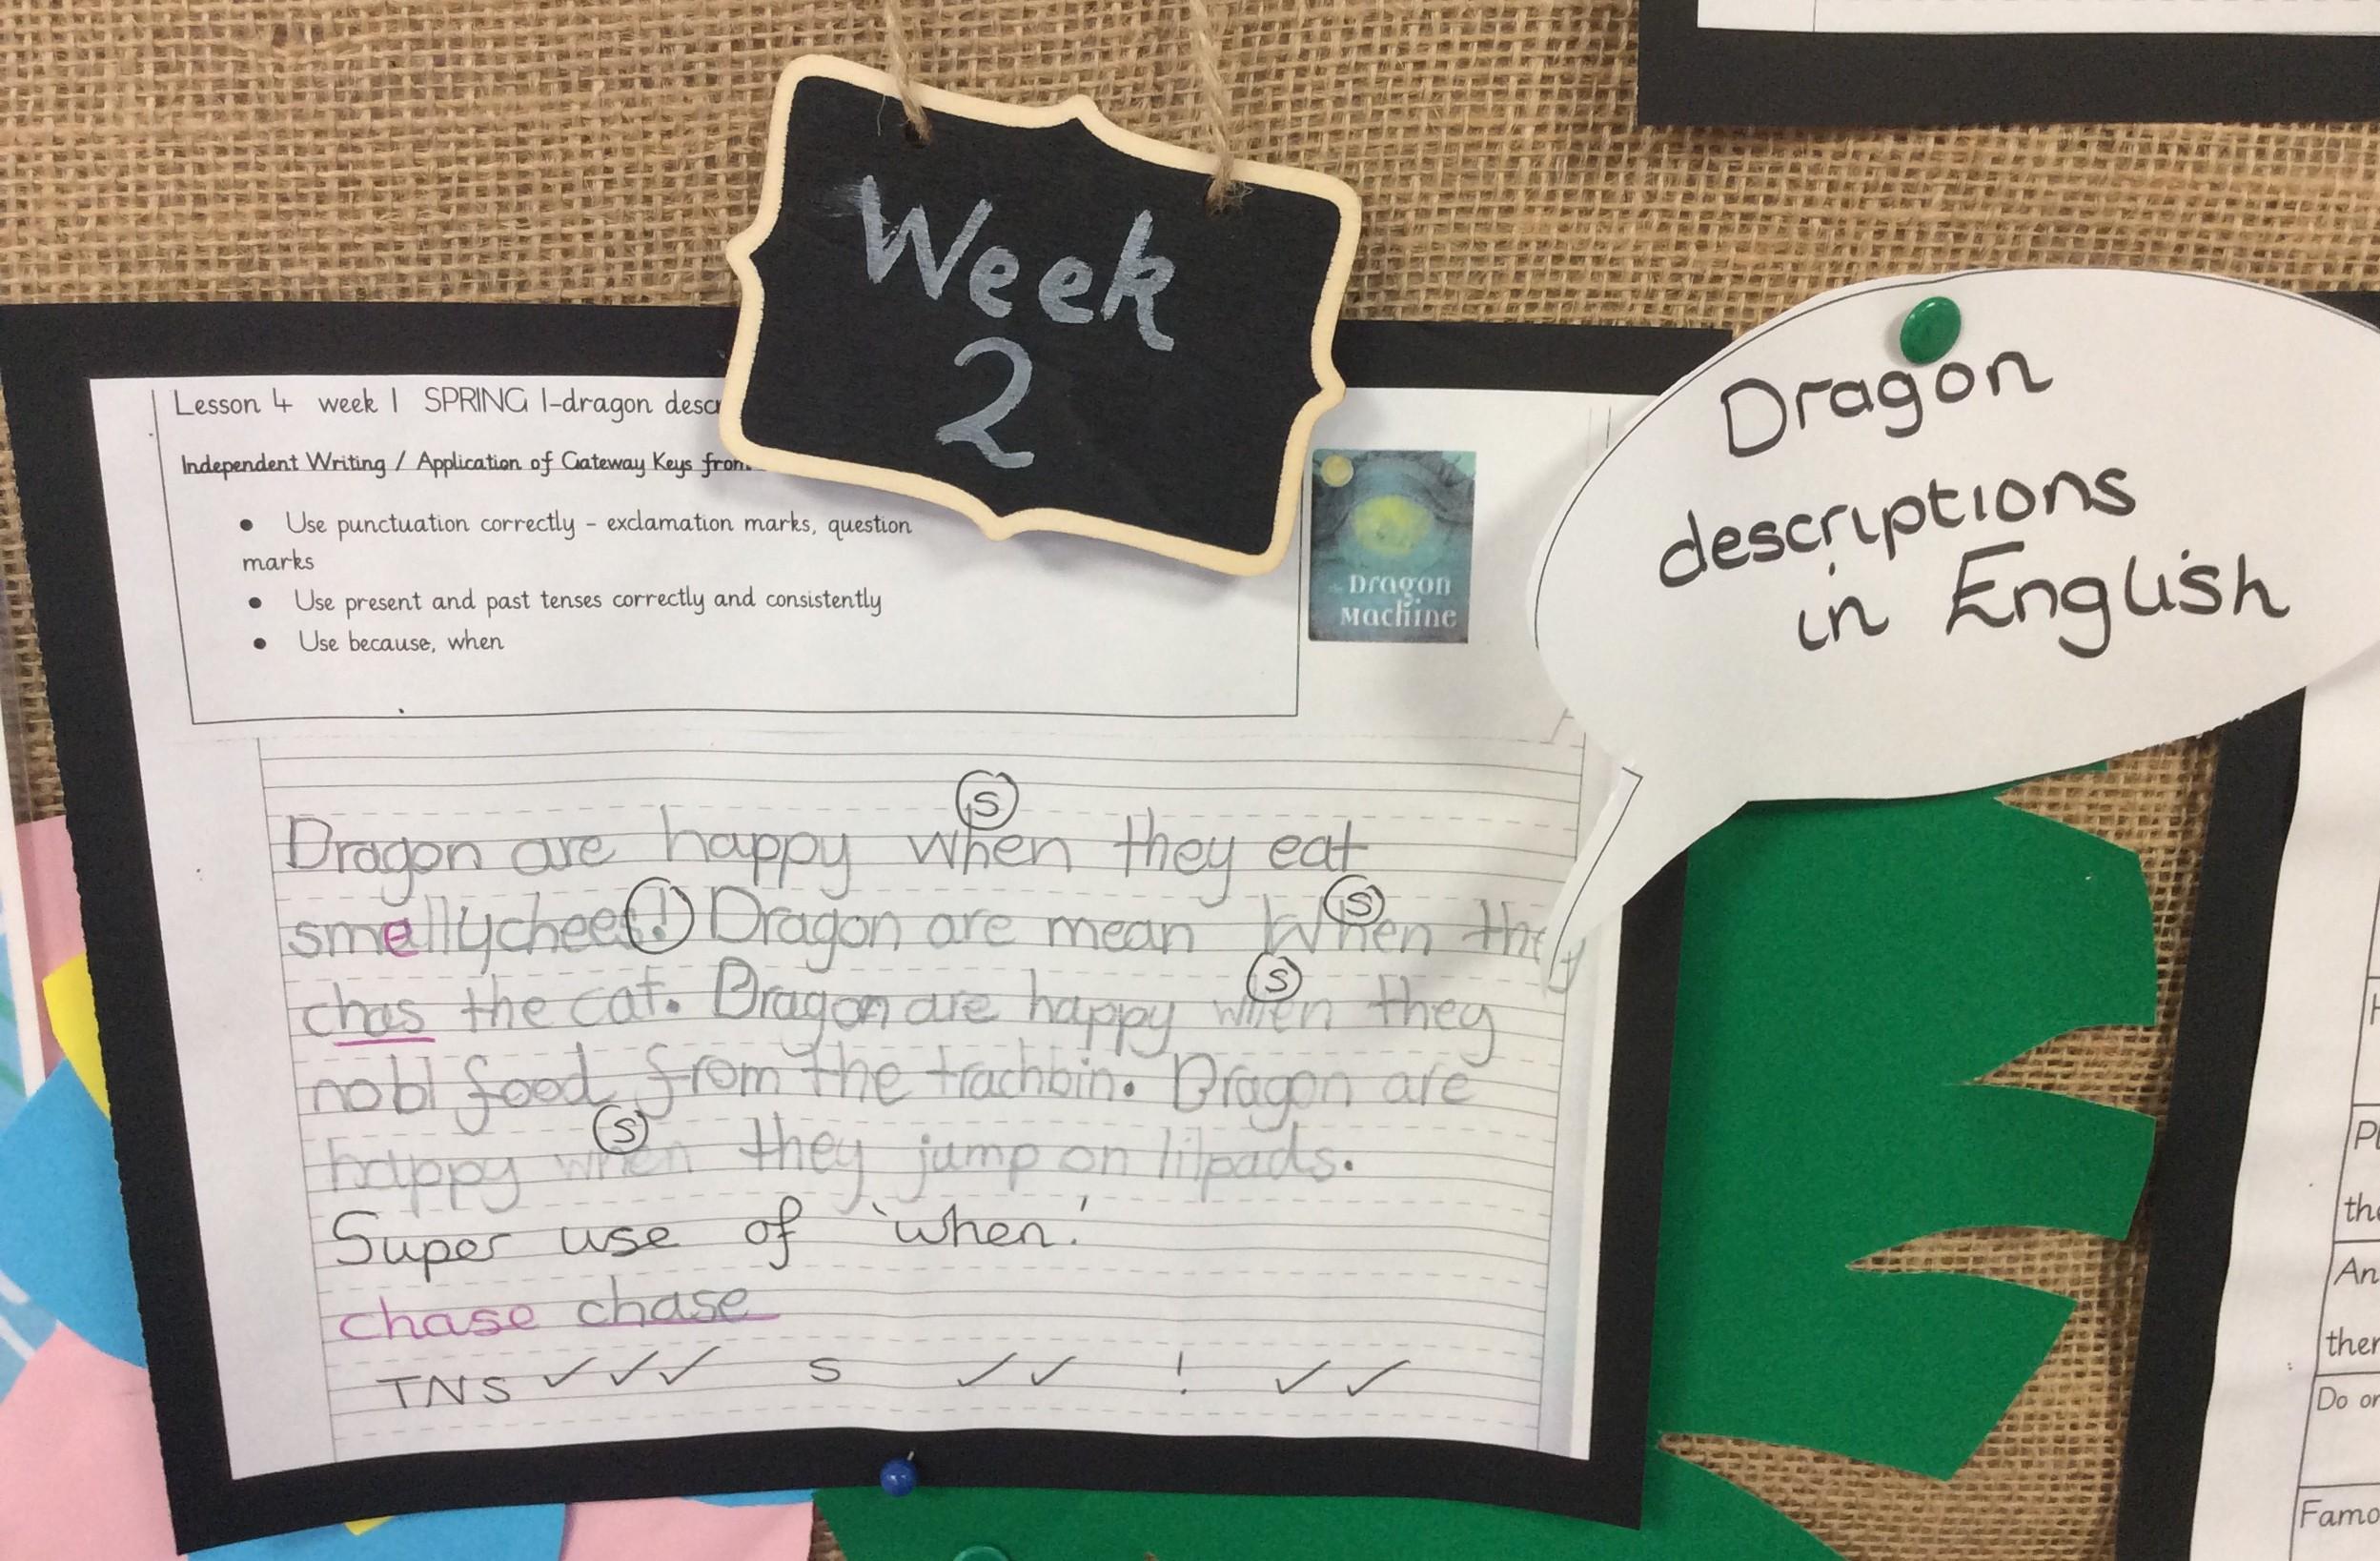 Week
2
Lesson 4 week 1 SPRING 1-dragon
Independent Writing / Application of Gateway Keys from
• Use punctuation correctly - exclamation marks, question
marks
• Use present and past tenses correctly and consistently
• Use because, when
Dragon
Machine
Dragon
descriptions
in English
S
Dragon are happy when they eat
S
smellychees! Dragon are mean When they
S
chas the cat. Dragon are happy when they
nobl food from the trachbin. Dragon are
S
happy when they jump on lilpads.
Super use of 'when'.
chase chase
TNS ✓✓✓ S ✓✓ ! ✓✓
Do